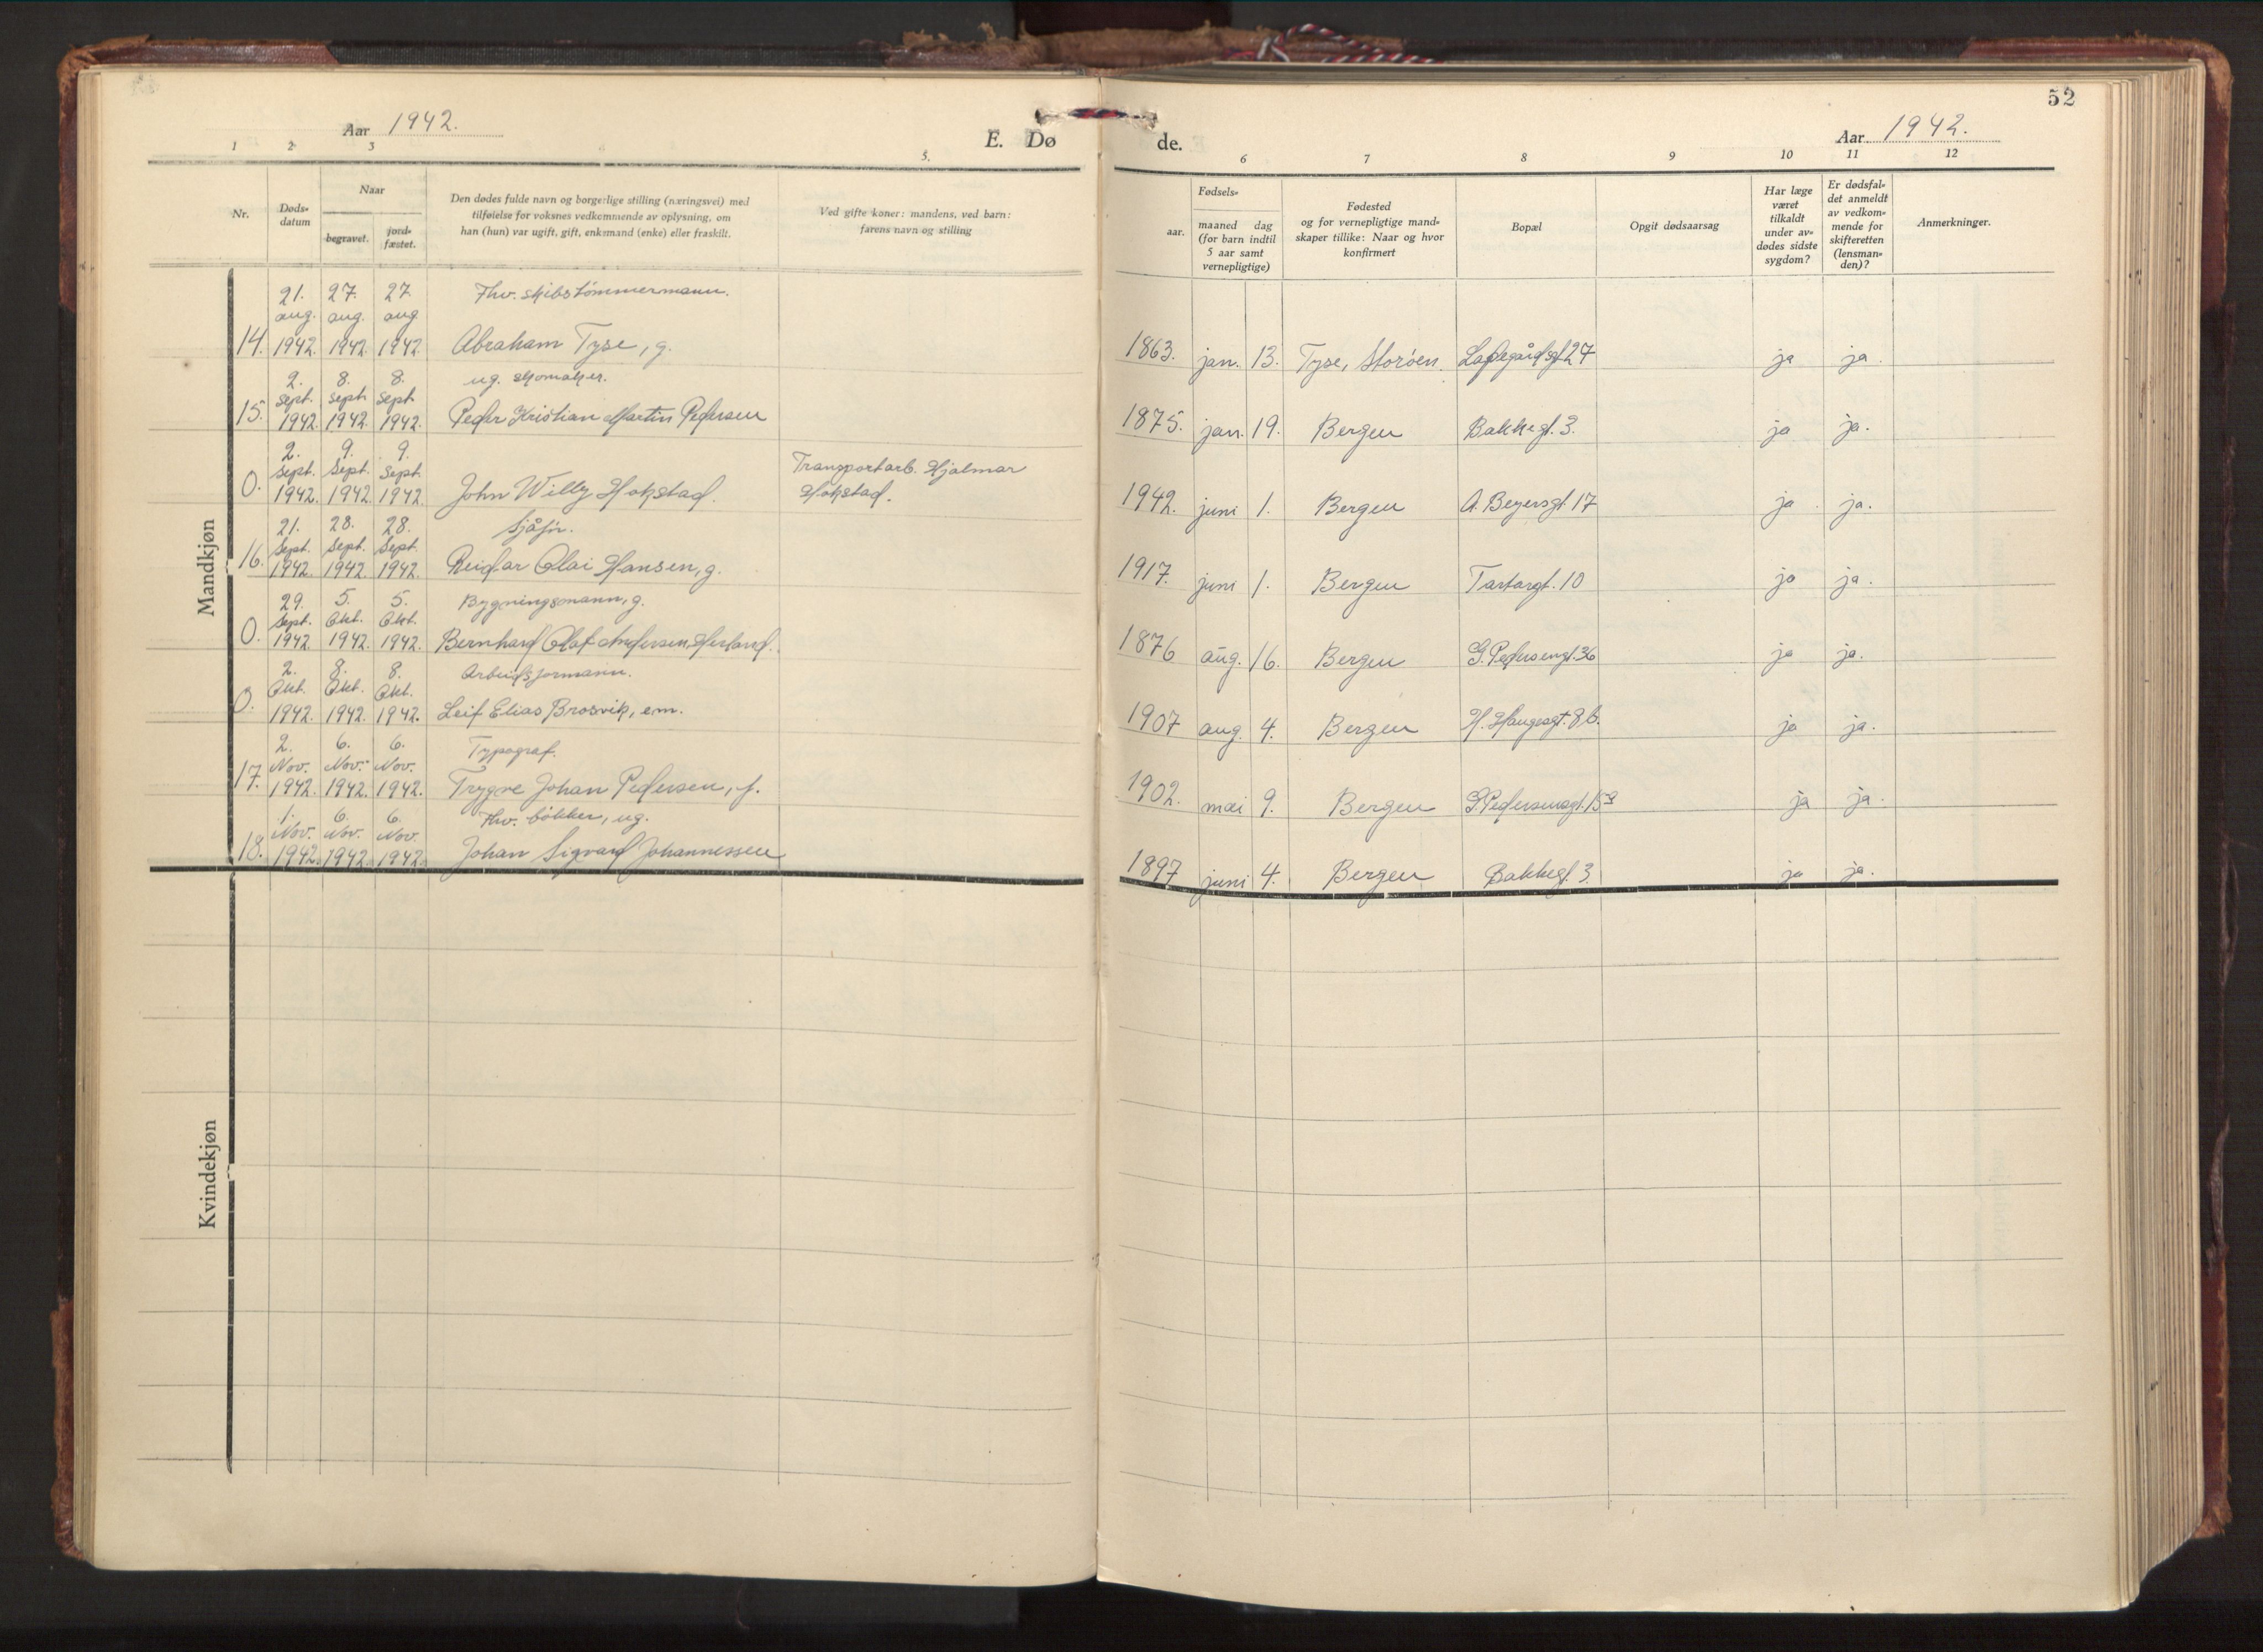 52
Aar 1942.
E. Dø
de.
Aar 1942.
1 2 3 5. 6 7 8 9 10 11 12
Nr.
Døds-
datum
Naar
begravet.
jord-
fæstet.
Den dødes fulde navn og borgerlige stilling (næringsvei) med
tilføielse for voksnes vedkommende av oplysning, om
han (hun) var ugift, gift, enkemand (enke) eller fraskilt.
Ved gifte koner: mandens, ved barn:
farens navn og stilling
Fødsels-
aar.
maaned dag
(for barn indtil
5 aar samt
vernepligtige)
Fødested
og for vernepligtige mand-
skaper tillike: Naar og hvor
konfirmert
Bopæl
Opgit dødsaarsag
Har læge
været
tilkaldt
under av-
dødes sidste
sygdom?
Er dødsfal-
det anmeldt
av vedkom-
mende for
skifteretten
(lensman-
den)?
Anmerkninger.
Mandkjøn
21. 27. 27 Fhv. skibstømmermann.
aug. aug. aug.
14. 1942. 1942. 1942. Abraham Tyse, g. 1863. jan. 13. Tyse, Storøen. 27 ja ja.
2. 8. 8. ug. skomaker.
sept. sept. sept.
15. 1942. 1942. 1942. Peder Kristian Martin Pedersen 1875. jan. 19. Bergen Bakkegt. 3. ja ja.
2. 9. 9. Transportarb. Hjalmar
Sept. Sept. Sept.
0. 1942. 1942. 1942. John Willy Hokstad. Hokstad. 1942. juni 1. Bergen A. Beyersgt. 17 ja ja.
21. 28. 28. Sjåfør.
Sept. Sept. Sept.
16. 1942. 1942. 1942. Reidar Olai Hansen, g. 1917. juni 1. Bergen Tartargt. 10 ja ja.
29. 5. 5. Bygningsmann, g.
Sept. Okt. Okt.
0. 1942. 1942. 1942. Bernhard Olaf Andersen Herland. 1876 aug. 16. Bergen G. Pedersengt. 36 ja ja.
2. 8. 8. Arbeidsformann.
Okt. Okt. Okt.
0. 1942. 1942. 1942. Leif Elias Brosvik, em. 1907 aug. 4. Bergen H. Haugesgt. 8b. ja ja.
2. 6. 6. Typograf.
Nov. Nov. Nov.
17. 1942. 1942. 1942. Trygve Johan Pedersen, f. 1902. mai 9. Bergen G. Pedersensgt. ja ja.
1. 6. 6. Fhv. bøkker, ug.
Nov. Nov. Nov.
18. 1942. 1942. 1942. Johan Sigvard Johannessen 1897 juni 4. Bergen Bakkegt. 3. ja ja.
Kvindekjøn